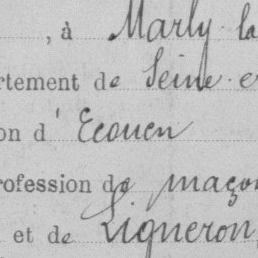 , à Marly la
rtement de Seine e
on d'Ecouen
rofession de maçon
et de Ligneron,